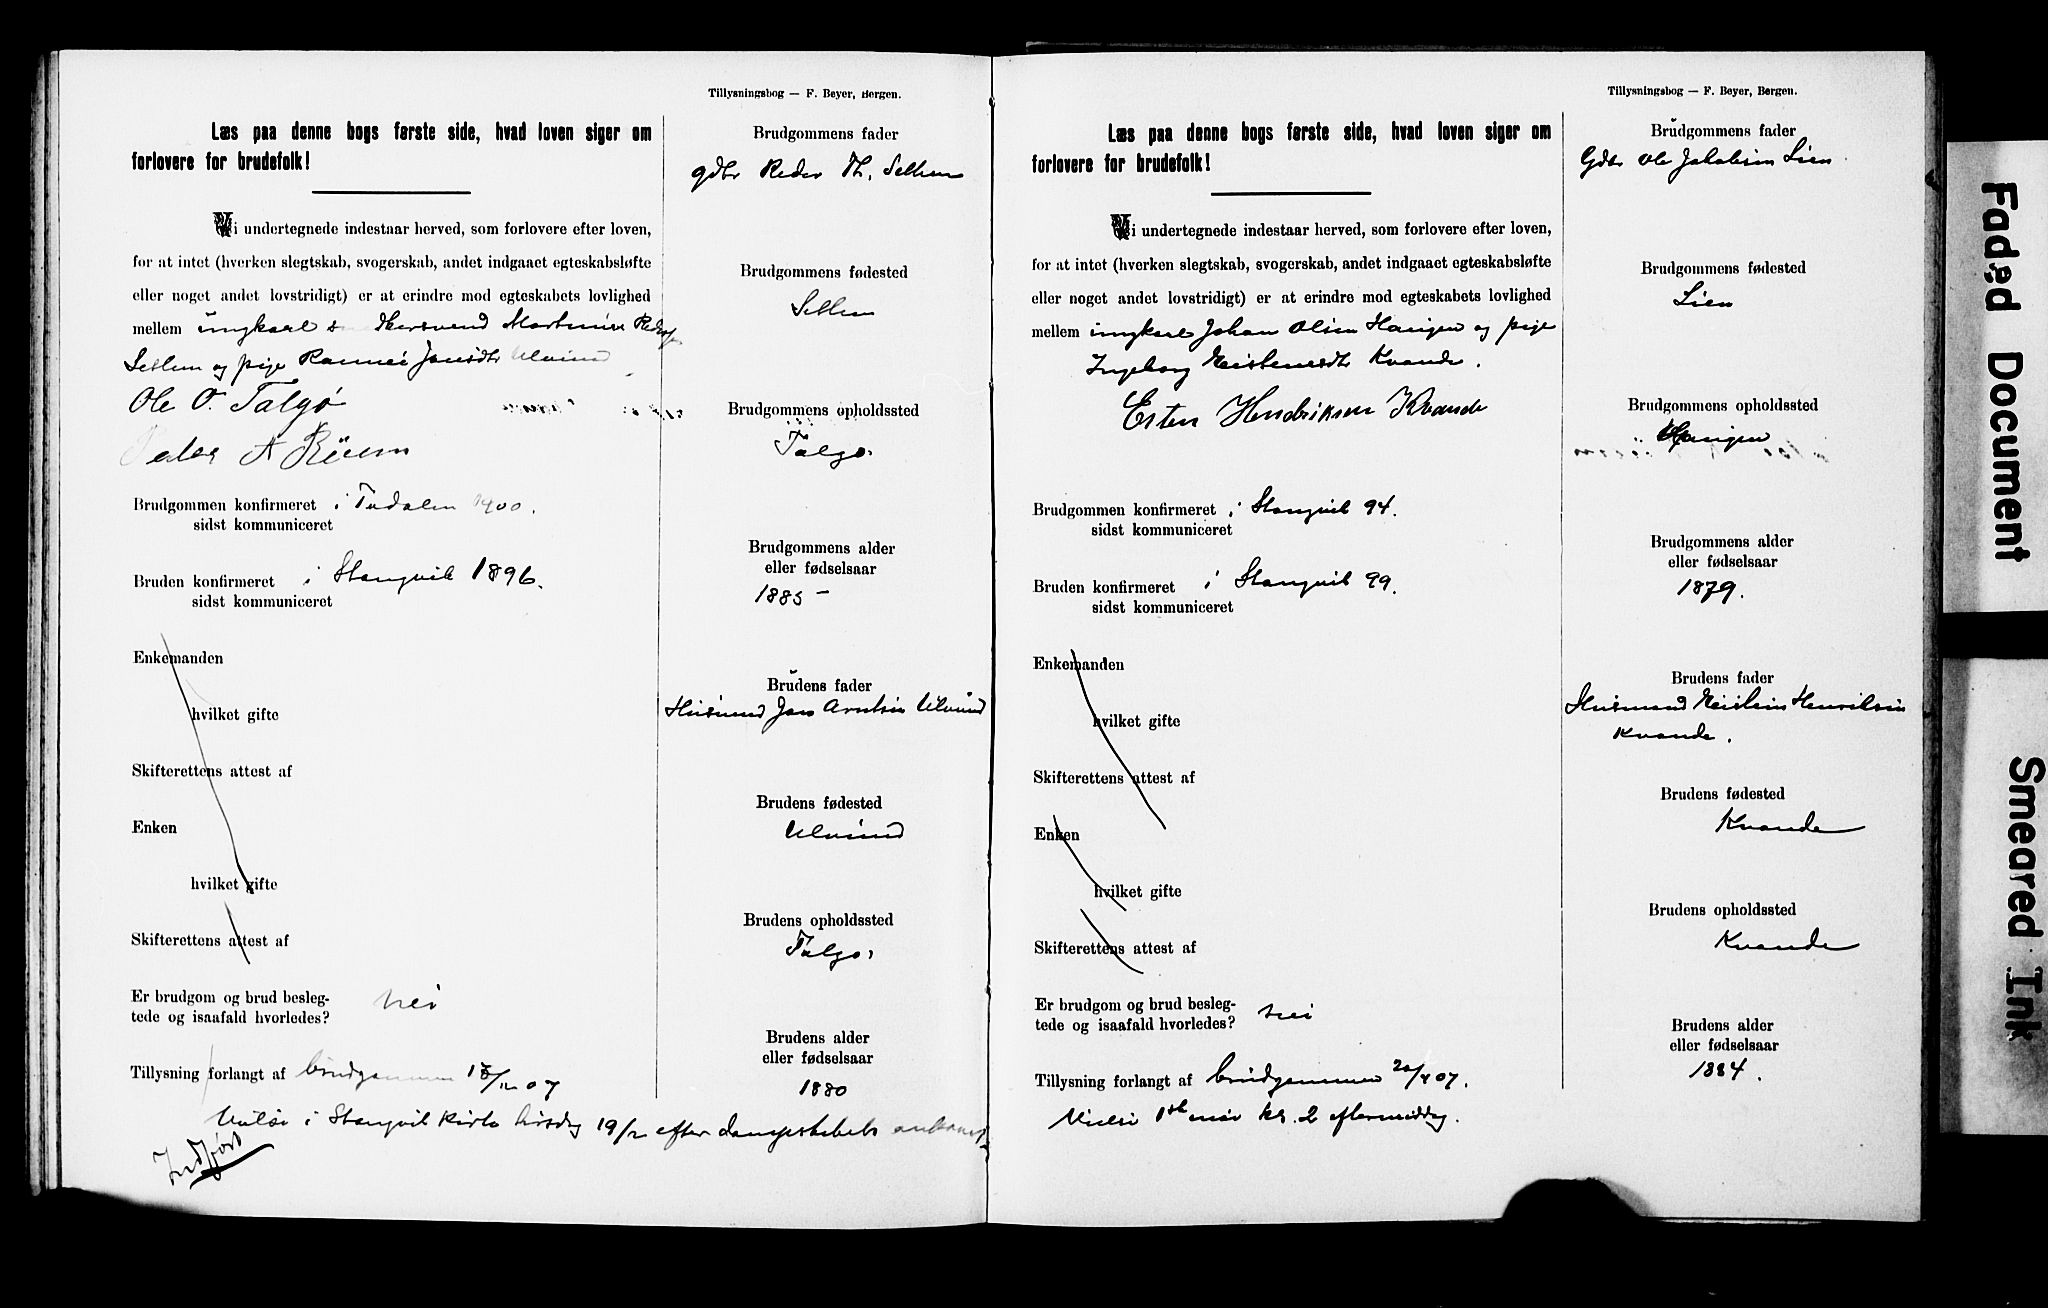 Tillysningsbog — F. Beyer, Bergen.
Læs paa denne bogs første side, hvad loven siger om
forlovere for brudefolk!
Vi undertegnede indestaar herved, som forlovere efter loven,
for at intet (hverken slegtskab, svogerskab, andet indgaaet egteskabsløfte
eller noget andet lovstridigt) er at erindre mod egteskabets lovlighed
mellem ungkarl Hersvend Martinius
Settem og pige Jonsdtr Ulvund
Ole O. Talgø
Peder A
Brudgommen konfirmeret i Todalen 1900.
sidst kommuniceret
Bruden konfirmeret i Stangvik 1896.
sidst kommuniceret
Enkemanden
hvilket gifte
Skifterettens attest af
Enken
hvilket gifte
Skifterettens attest af
Er brudgom og brud besleg-
tede og isaafald hvorledes? nei
Tillysning forlangt af brudgommen 07
i Stangvik Kirke tirsdag 19/ efter dampskibets ankomst
Indført
Brudgommens fader
gdbr Peder Th. Settem
Brudgommens fødested
Settem
Brudgommens opholdssted
Talgø
Brudgommens alder
eller fødselsaar
1885 –
Brudens fader
Husmand Jon Arntsen Ulvund
Brudens fødested
Ulvund
Brudens opholdssted
Talgø
Brudens alder
eller fødselsaar
1880
Tillysningsbog — F. Beyer, Bergen.
Læs paa denne bogs første side, hvad loven siger om
forlovere for brudefolk!
Vi undertegnede indestaar herved, som forlovere efter loven,
for at intet (hverken slegtskab, svogerskab, andet indgaaet egteskabsløfte
eller noget andet lovstridigt) er at erindre mod egteskabets lovlighed
mellem ungkarl Johan Olsen Haugen og pige
Ingeborg Eistensdtr Kvande.
Esten Hendriksen Kvande
Brudgommen konfirmeret i Stangvik 94.
sidst kommuniceret
Bruden konfirmeret i Stangvik 99.
sidst kommuniceret
Enkemanden
hvilket gifte
Skifterettens attest af
Enken
hvilket gifte
Skifterettens attest af
Er brudgom og brud besleg-
tede og isaafald hvorledes? nei
Tillysning forlangt af brudgommen 20/4 07.
Vielse 1ste mai kl. 2 eftermiddag.
Brudgommens fader
Gdbr Ole Jakobsen Lien
Brudgommens fødested
Lien
Brudgommens opholdssted
Haugen
Brudgommens alder
eller fødselsaar
1879.
Brudens fader
Husmand Eisten Henriksen
Kvande.
Brudens fødested
Kvande
Brudens opholdssted
Kvande
Brudens alder
eller fødselsaar
1884.
Faded Document
Smeared Ink